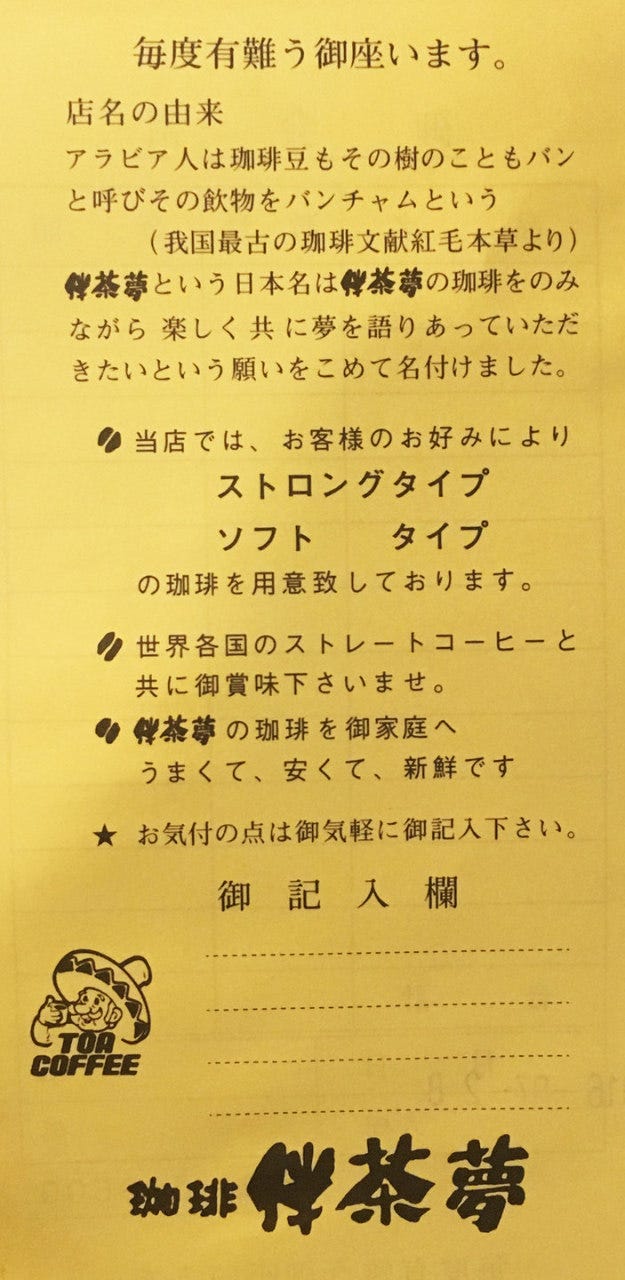 毎度有難う御座います。
店名の由来
アラビア人は珈琲豆もその樹のこともバン
と呼びその飲物をバンチャムという
(我国最古の珈琲文献紅毛本草より)
伴茶夢という日本名は伴茶夢の珈琲をのみ
ながら 楽しく 共 に夢を語りあっていただ
きたいという願いをこめて名付けました。
当店では、お客様のお好みにより
ストロングタイプ
ソフト タイプ
の珈琲を用意致しております。
世界各国のストレートコーヒーと
共に御賞味下さいませ。
伴茶夢の珈琲を御家庭へ
うまくて、安くて、新鮮です
★ お気付の点は御気軽に御記入下さい。
御記入欄
TOA
COFFEE
珈琲 伴茶夢